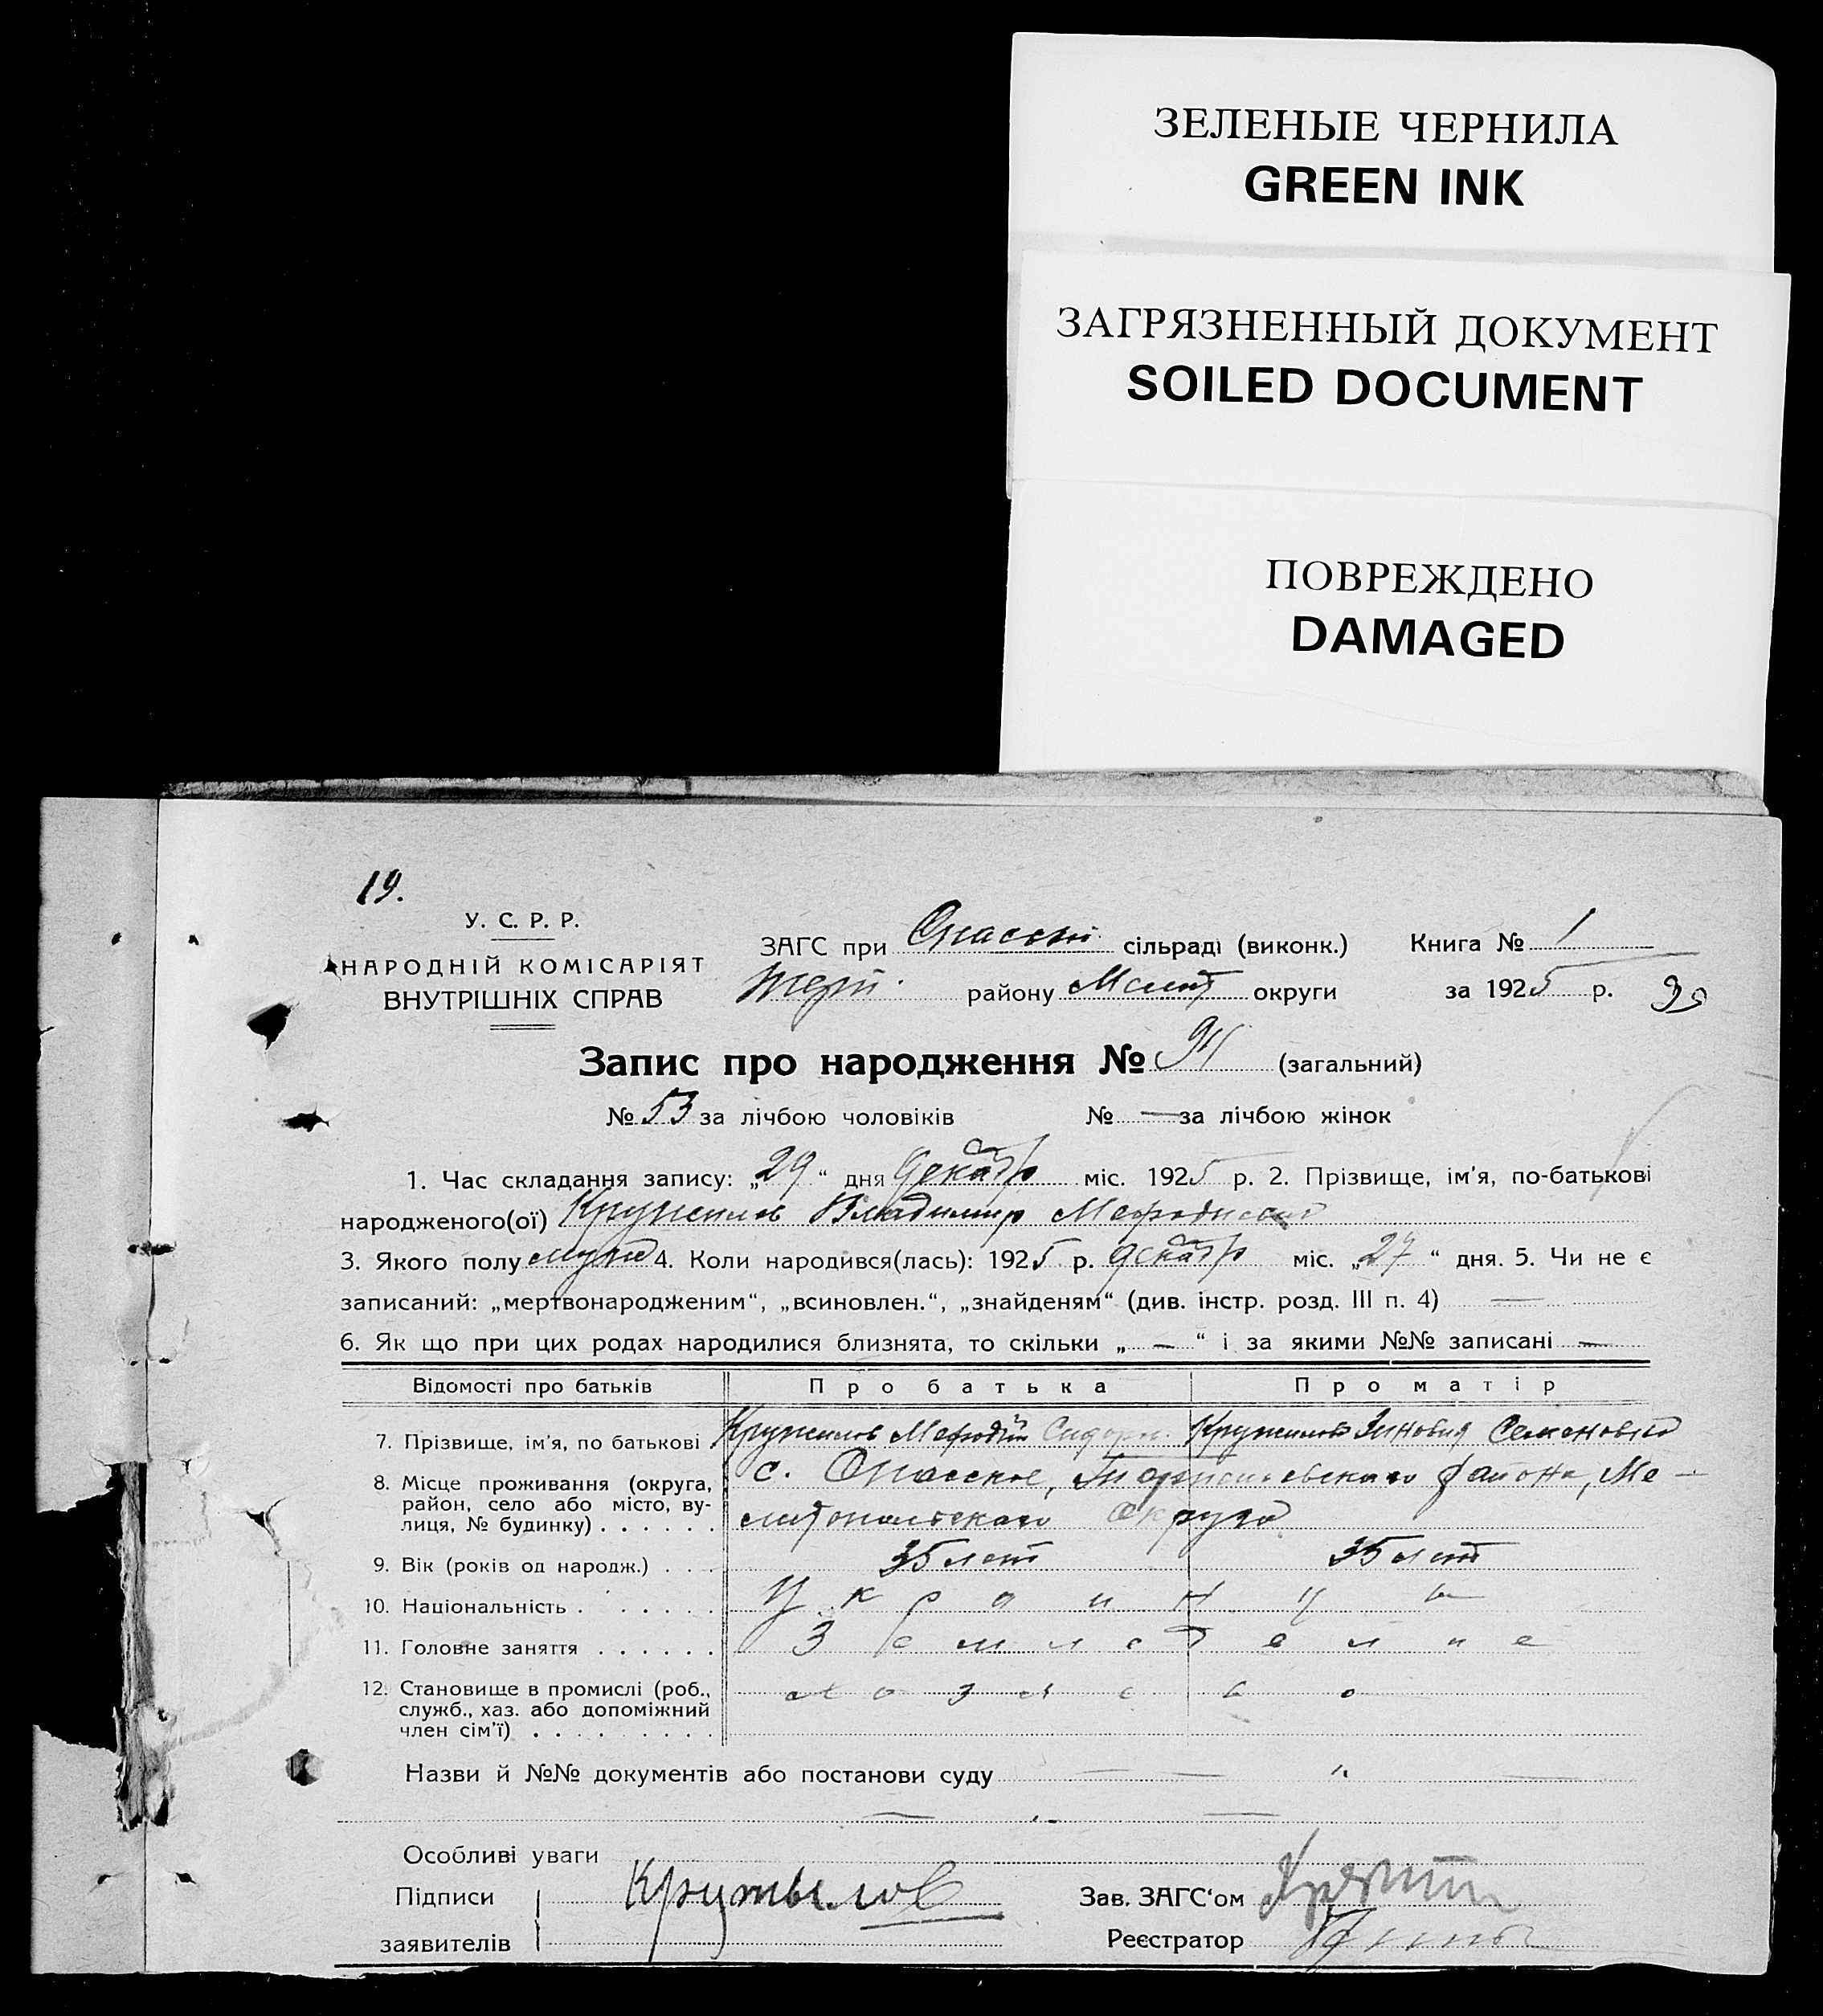 ЗЕЛЕНЫЕ ЧЕРНИЛА
GREEN INK
ЗАГРЯЗНЕННЫЙ ДОКУМЕНТ
SOILED DOCUMENT
ПОВРЕЖДЕНО
DAMAGED
19.
У. С. Р. Р.
НАРОДНІЙ КОМІСАРІЯТ
ВНУТРІШНІХ СПРАВ
ЗАГС при Спасской сільраді (виконк.) Книга № 1
району Мелит округи за 1925 р.
Запис про народження № 94 (загальний)
№ 53 за лічбою чоловіків № — за лічбою жінок
1. Час складання запису: „29“ дня декабр міс. 1925 р. 2. Прізвище, ім'я, по-батькові
народженого(ої) Кружилов Владимир Мефодиевич
3. Якого полу муж 4. Коли народився(лась): 1925 р. декабр міс. „27“ дня. 5. Чи не є
записаний: „мертвонародженим“, „всиновлен.“, „знайденям“ (див. інстр. розд. III п. 4) —
6. Як що при цих родах народилися близнята, то скільки „—“ і за якими №№ записані —
Відомості про батьків Про батька Про матір
7. Прізвище, ім'я, по батькові Кружилов Мефодий Сидор. Кружилова Зиновия Семеновна
8. Місце проживання (округа, район, село або місто, вулиця, № будинку) . . . . . . с. Спасское, района, Ме-
литопольского Округа
9. Вік (років од народж.) . . . 35 лет 35 лет
10. Національність . . . . . . Украинцы
11. Головне заняття . . . . . . Земледелие
12. Становище в промислі (роб., служб., хаз. або допоміжний член сім'ї) . . . . . . . .
Назви й №№ документів або постанови суду — — " —
— " —
Особливі уваги
Підписи Кружилов Зав. ЗАГС'ом
заявителів Реєстратор